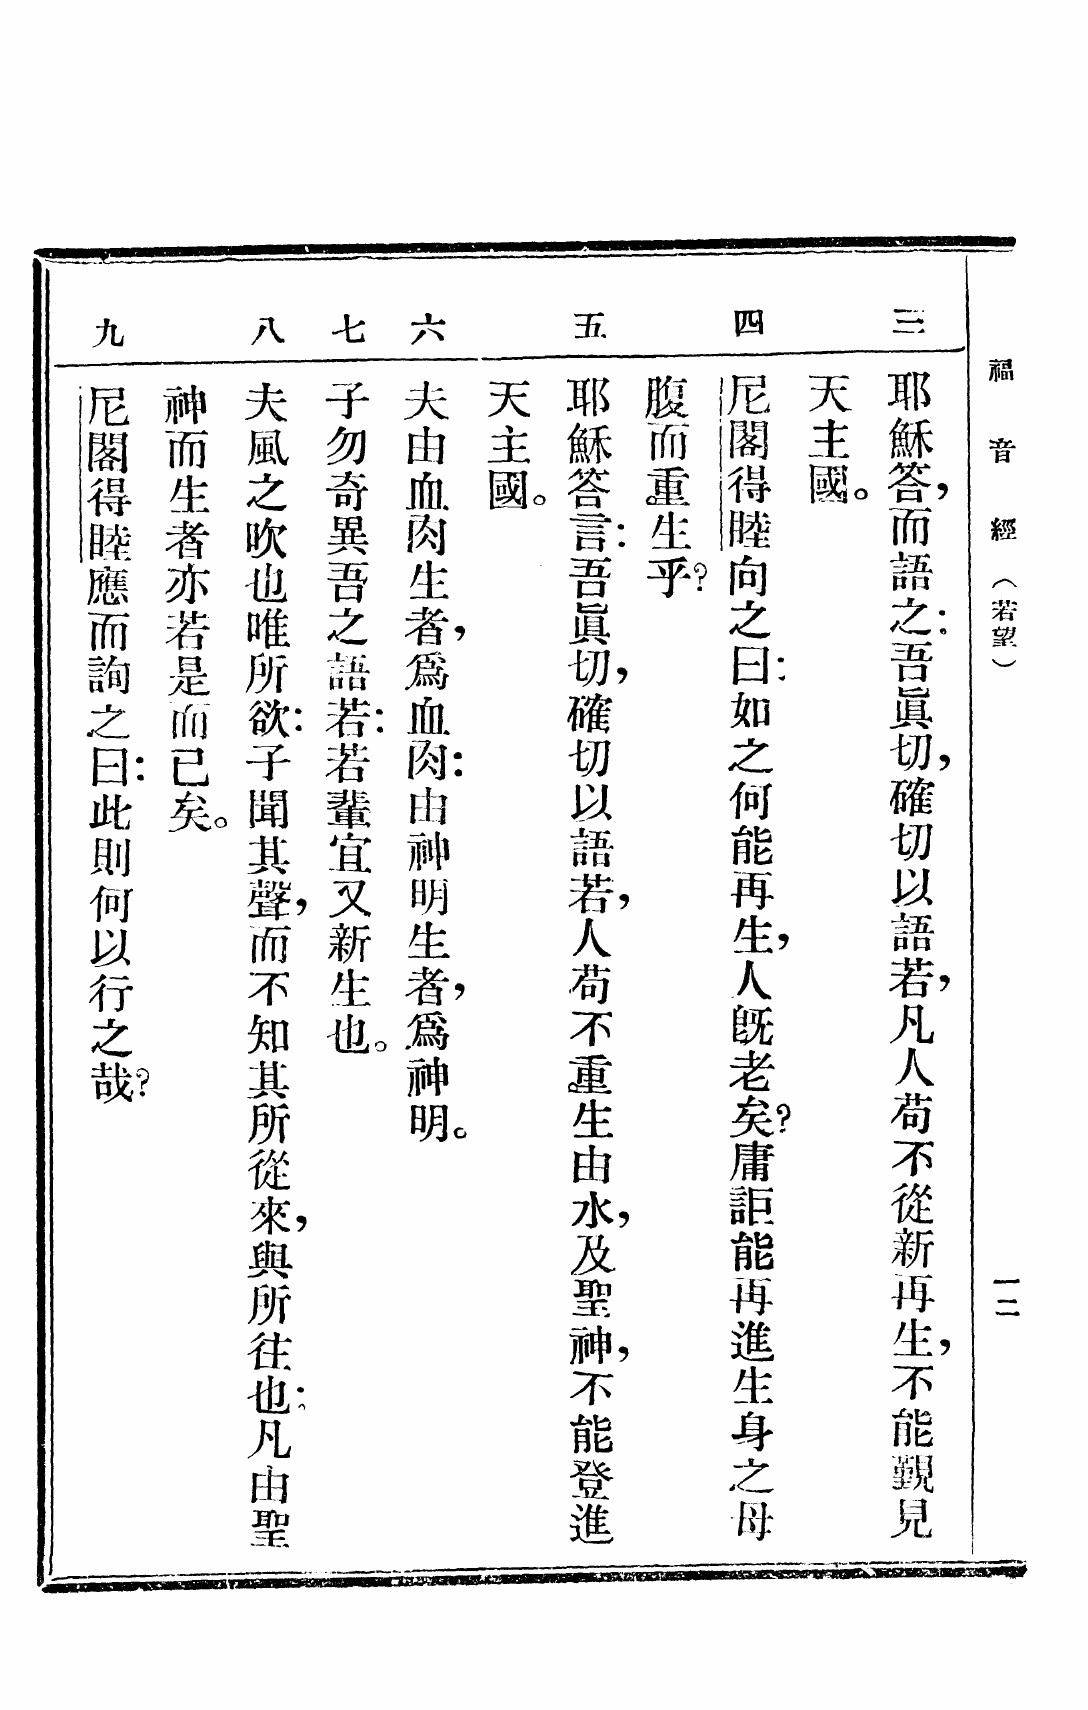 福音經（若望）　一二
三　耶穌答，而語之：吾眞切，確切以語若，凡人苟不從新再生，不能覲見
天主國。
四　尼閣得睦向之曰：如之何能再生，人旣老矣？庸詎能再進生身之母
腹而重生乎？
五　耶穌答言：吾眞切，確切以語若，人苟不重生由水，及聖神，不能登進
天主國。
六　夫由血肉生者，爲血肉：由神明生者，爲神明。
七　子勿奇異吾之語若：若輩宜又新生也。
八　夫風之吹也唯所欲：子聞其聲，而不知其所從來，與所往也：凡由聖
神而生者亦若是而已矣。
九　尼閣得睦應而詢之曰：此則何以行之哉？